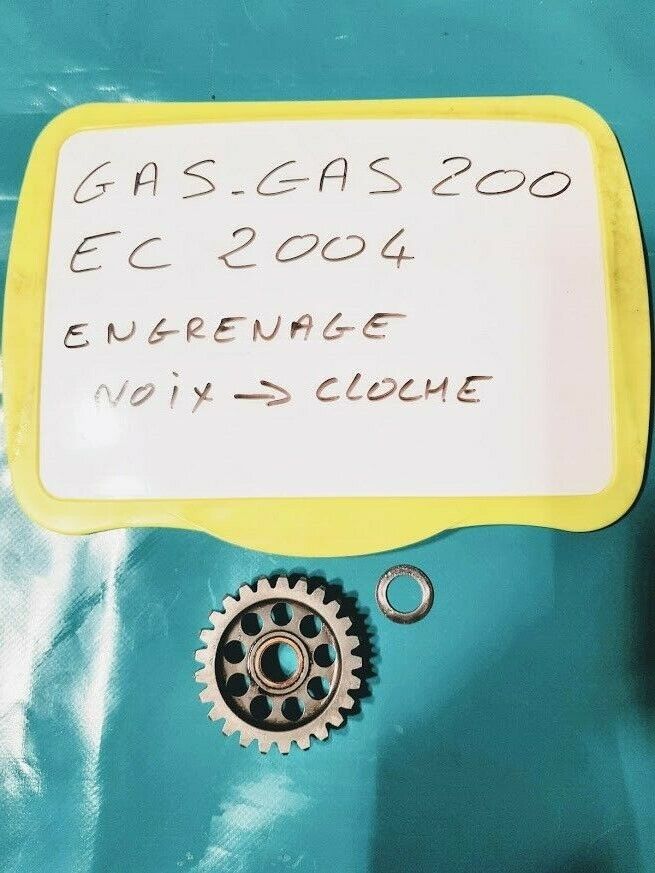 GAS-GAS 200
EC 2004
ENGRENAGE
NOiX → CLOCHE